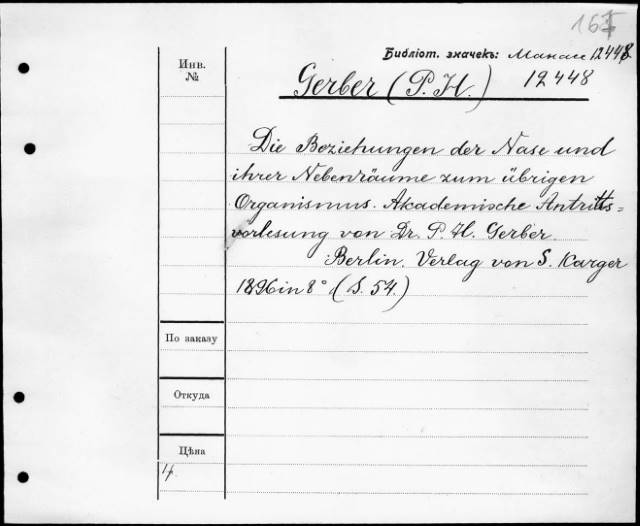 Библіот. значекъ: 12448
Инв.
№
Gerber (P. H.) 12448
Die Beziehungen der Nase und
ihrer Nebenräume zum übrigen
Organismus. Akademische Antritts=
vorlesung von Dr. P. H. Gerber.
Berlin. Verlag von S. Karger
1896 in 8° (S. 54.)
По заказу
Откуда
Цѣна